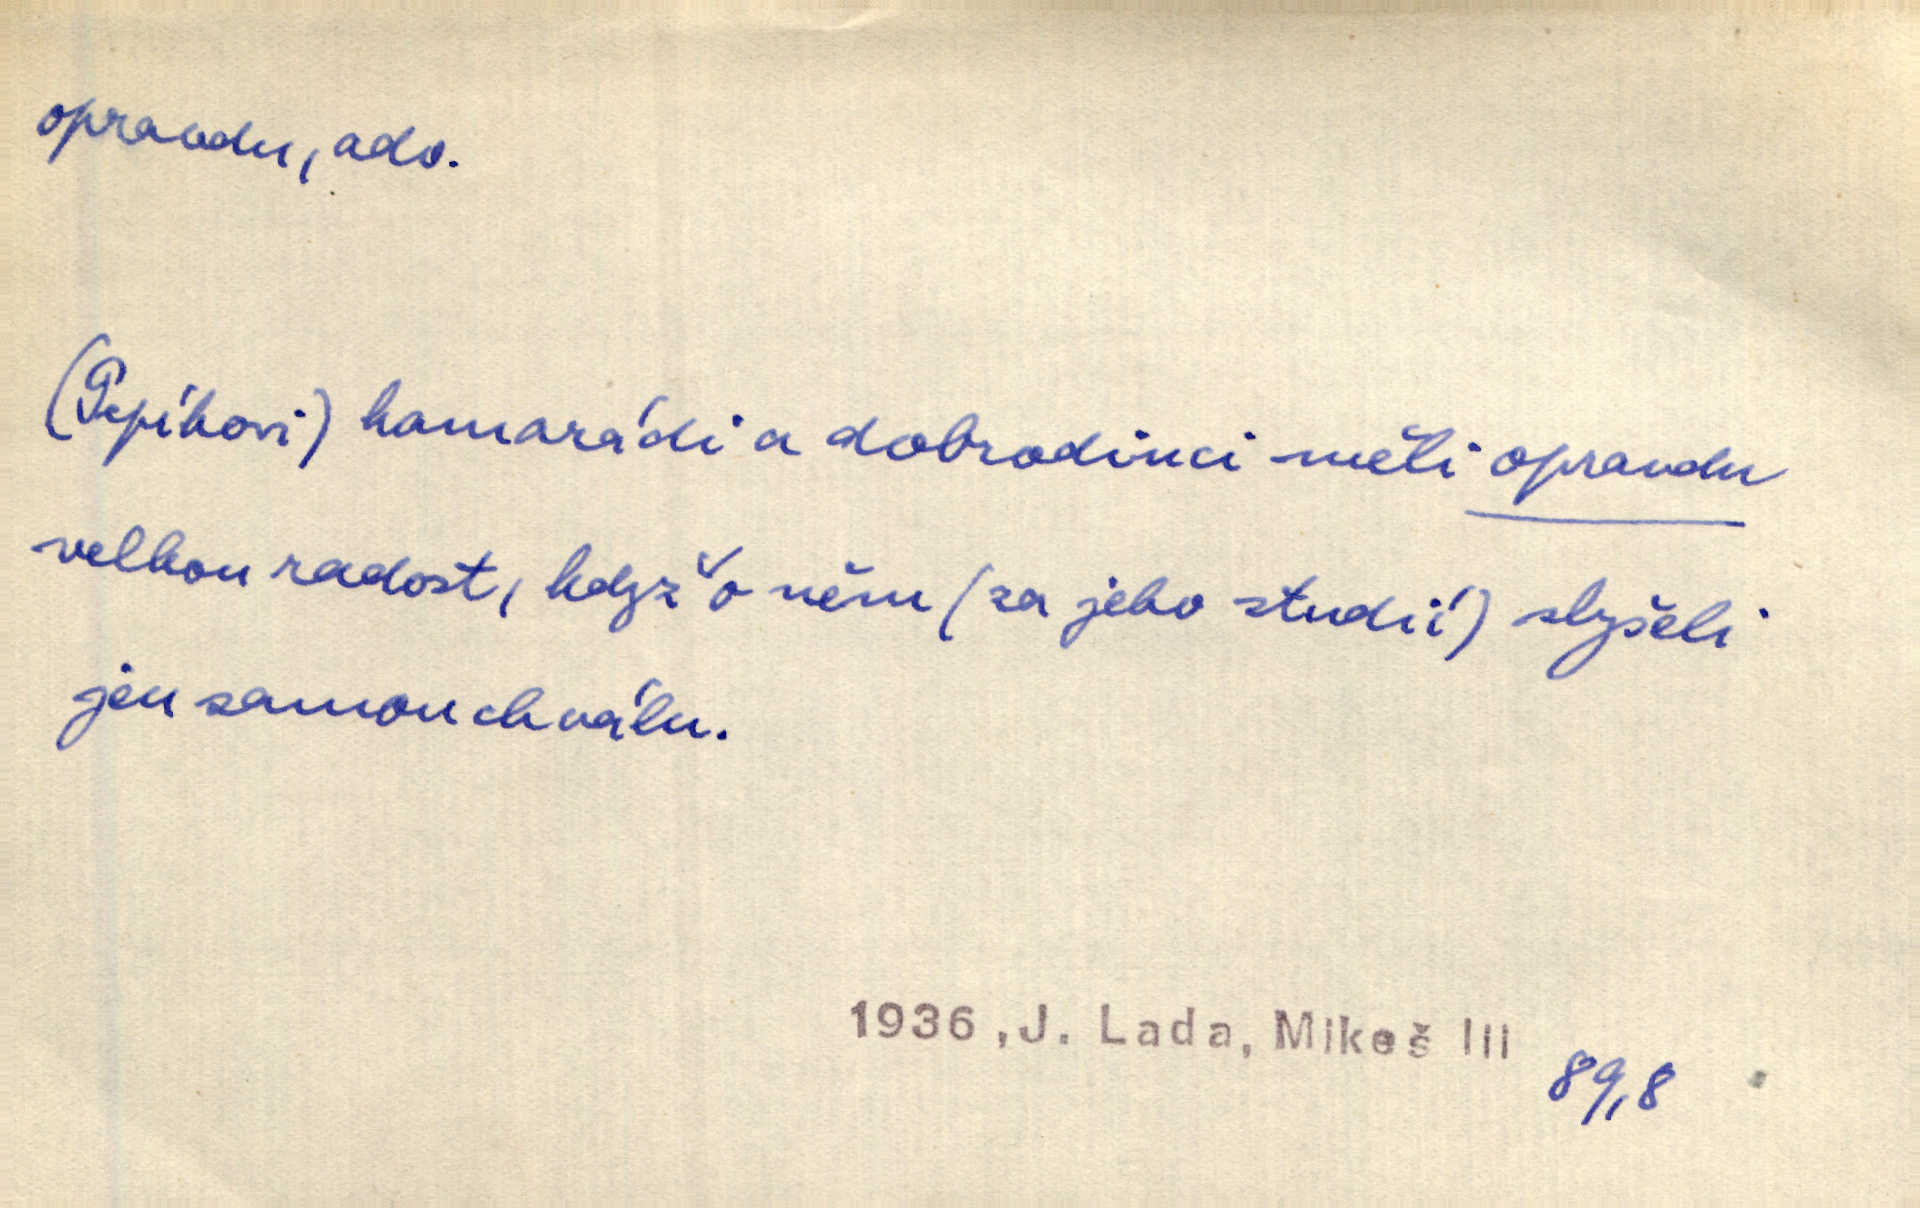 opravdu, adv.
(Pepíkovi) kamarádi a dobrodinci měli opravdu
velkou radost, když o něm (za jeho studií) slyšeli
jen samou chválu.
1936, J. Lada, Mikeš III
89,8